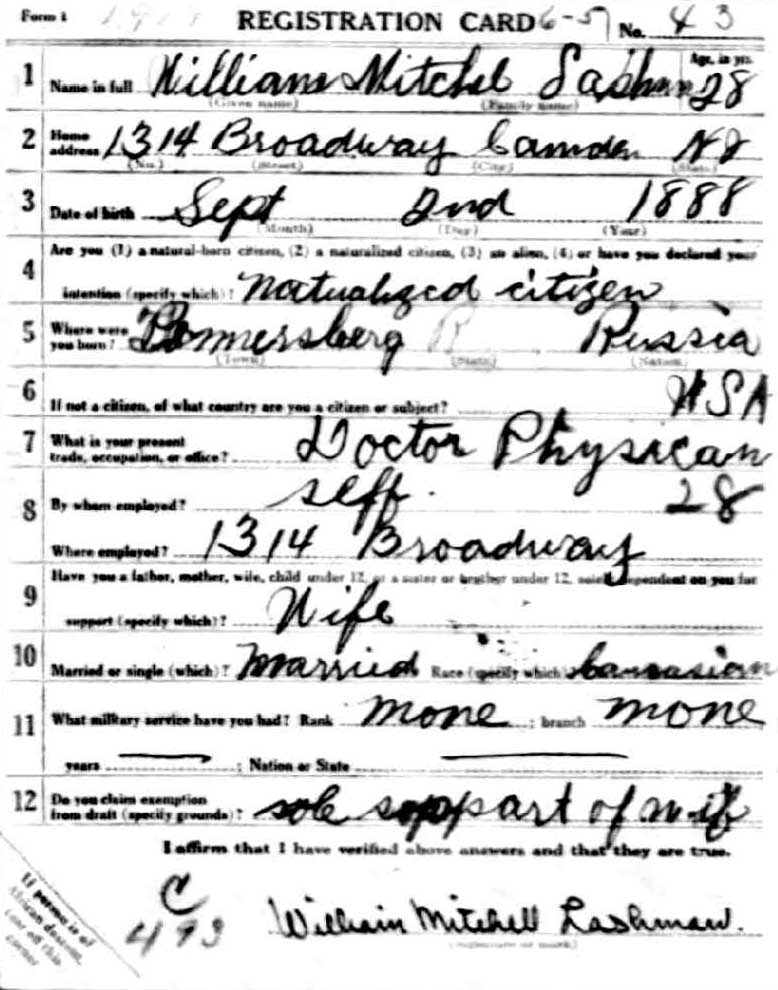 Form 1 REGISTRATION CARD 6-57 No. 43
1 Name in full William Mitchel Lashman Age, in yrs. 28
(Given name) (Family name)
2 Home address 1314 Broadway Camden NJ
(No.) (Street) (City) (State)
3 Date of birth Sept 2nd 1888
(Month) (Day) (Year)
4 Are you (1) a natural-born citizen, (2) a naturalized citizen, (3) an alien, (4) or have you declared your
intention (specify which)? Natualized citizen
5 Where were you born? Russia
(Town) (State) (Nation)
6 If not a citizen, of what country are you a citizen or subject? USA
7 What is your present trade, occupation, or office? Doctor Physican
8 By whom employed? self. 28
Where employed? 1314 Broadway
9 Have you a father, mother, wife, child under 12, or a sister or brother under 12, solely dependent on you for
support (specify which)? Wife
10 Married or single (which)? Married Race (specify which)? Caucasian
11 What military service have you had? Rank none ; branch none
years ; Nation or State
12 Do you claim exemption from draft (specify grounds)? sole suppart of wif
I affirm that I have verified above answers and that they are true.
C
493
William Mitchell Lashman.
(Signature or mark)
If person is of
African descent,
tear off this
corner